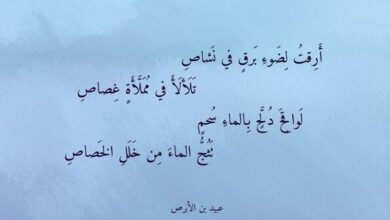 أَرِقتُ لِضَوءِ بَرقٍ في نَشاصِ
تَلَألَأَ في مُمَلَّأَةٍ غِصاصِ
لَواقِحَ دُلَّحٍ بِالماءِ سُحمٍ
تَثُجُّ الماءَ مِن خَلَلِ الخَصاصِ
عبيد بن الأبرص